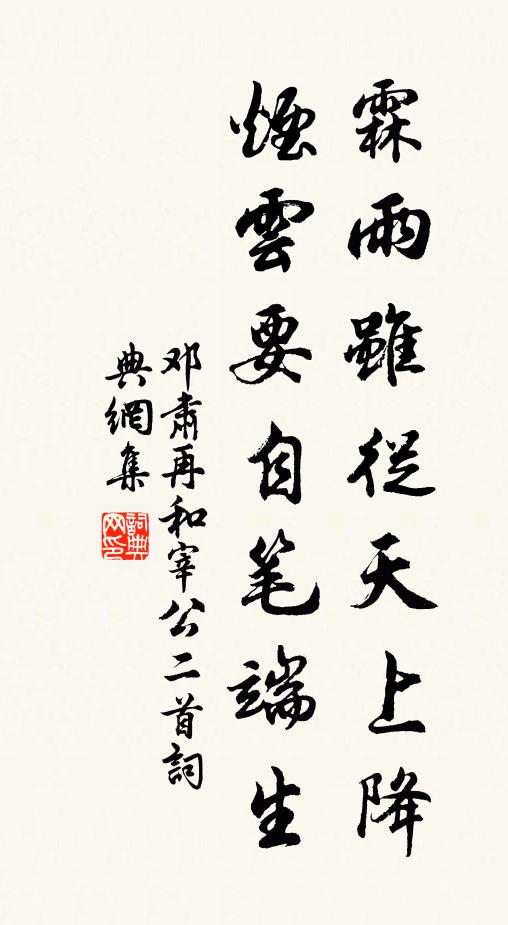 霖雨雖從天上降
煙雲要自笔端生
邓肅再和宰公二首詞
典網集
詞典
网印